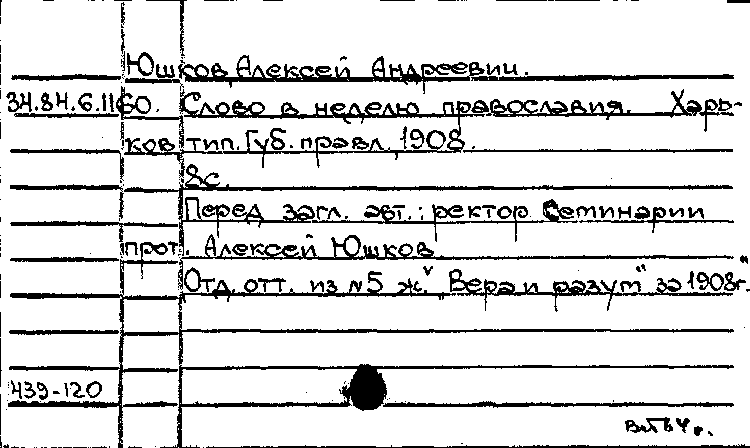 Юшков, Алексей Андреевич.
34.84.6.1160. Слово в неделю православия. Харь-
ков, тип. Губ. правл., 1908.
8с.
Перед загл. авт.: ректор Семинарии
прот. Алексей Юшков.
Отд. отт. из №5 ж. "Вера и разум" за 1908г.
439-120